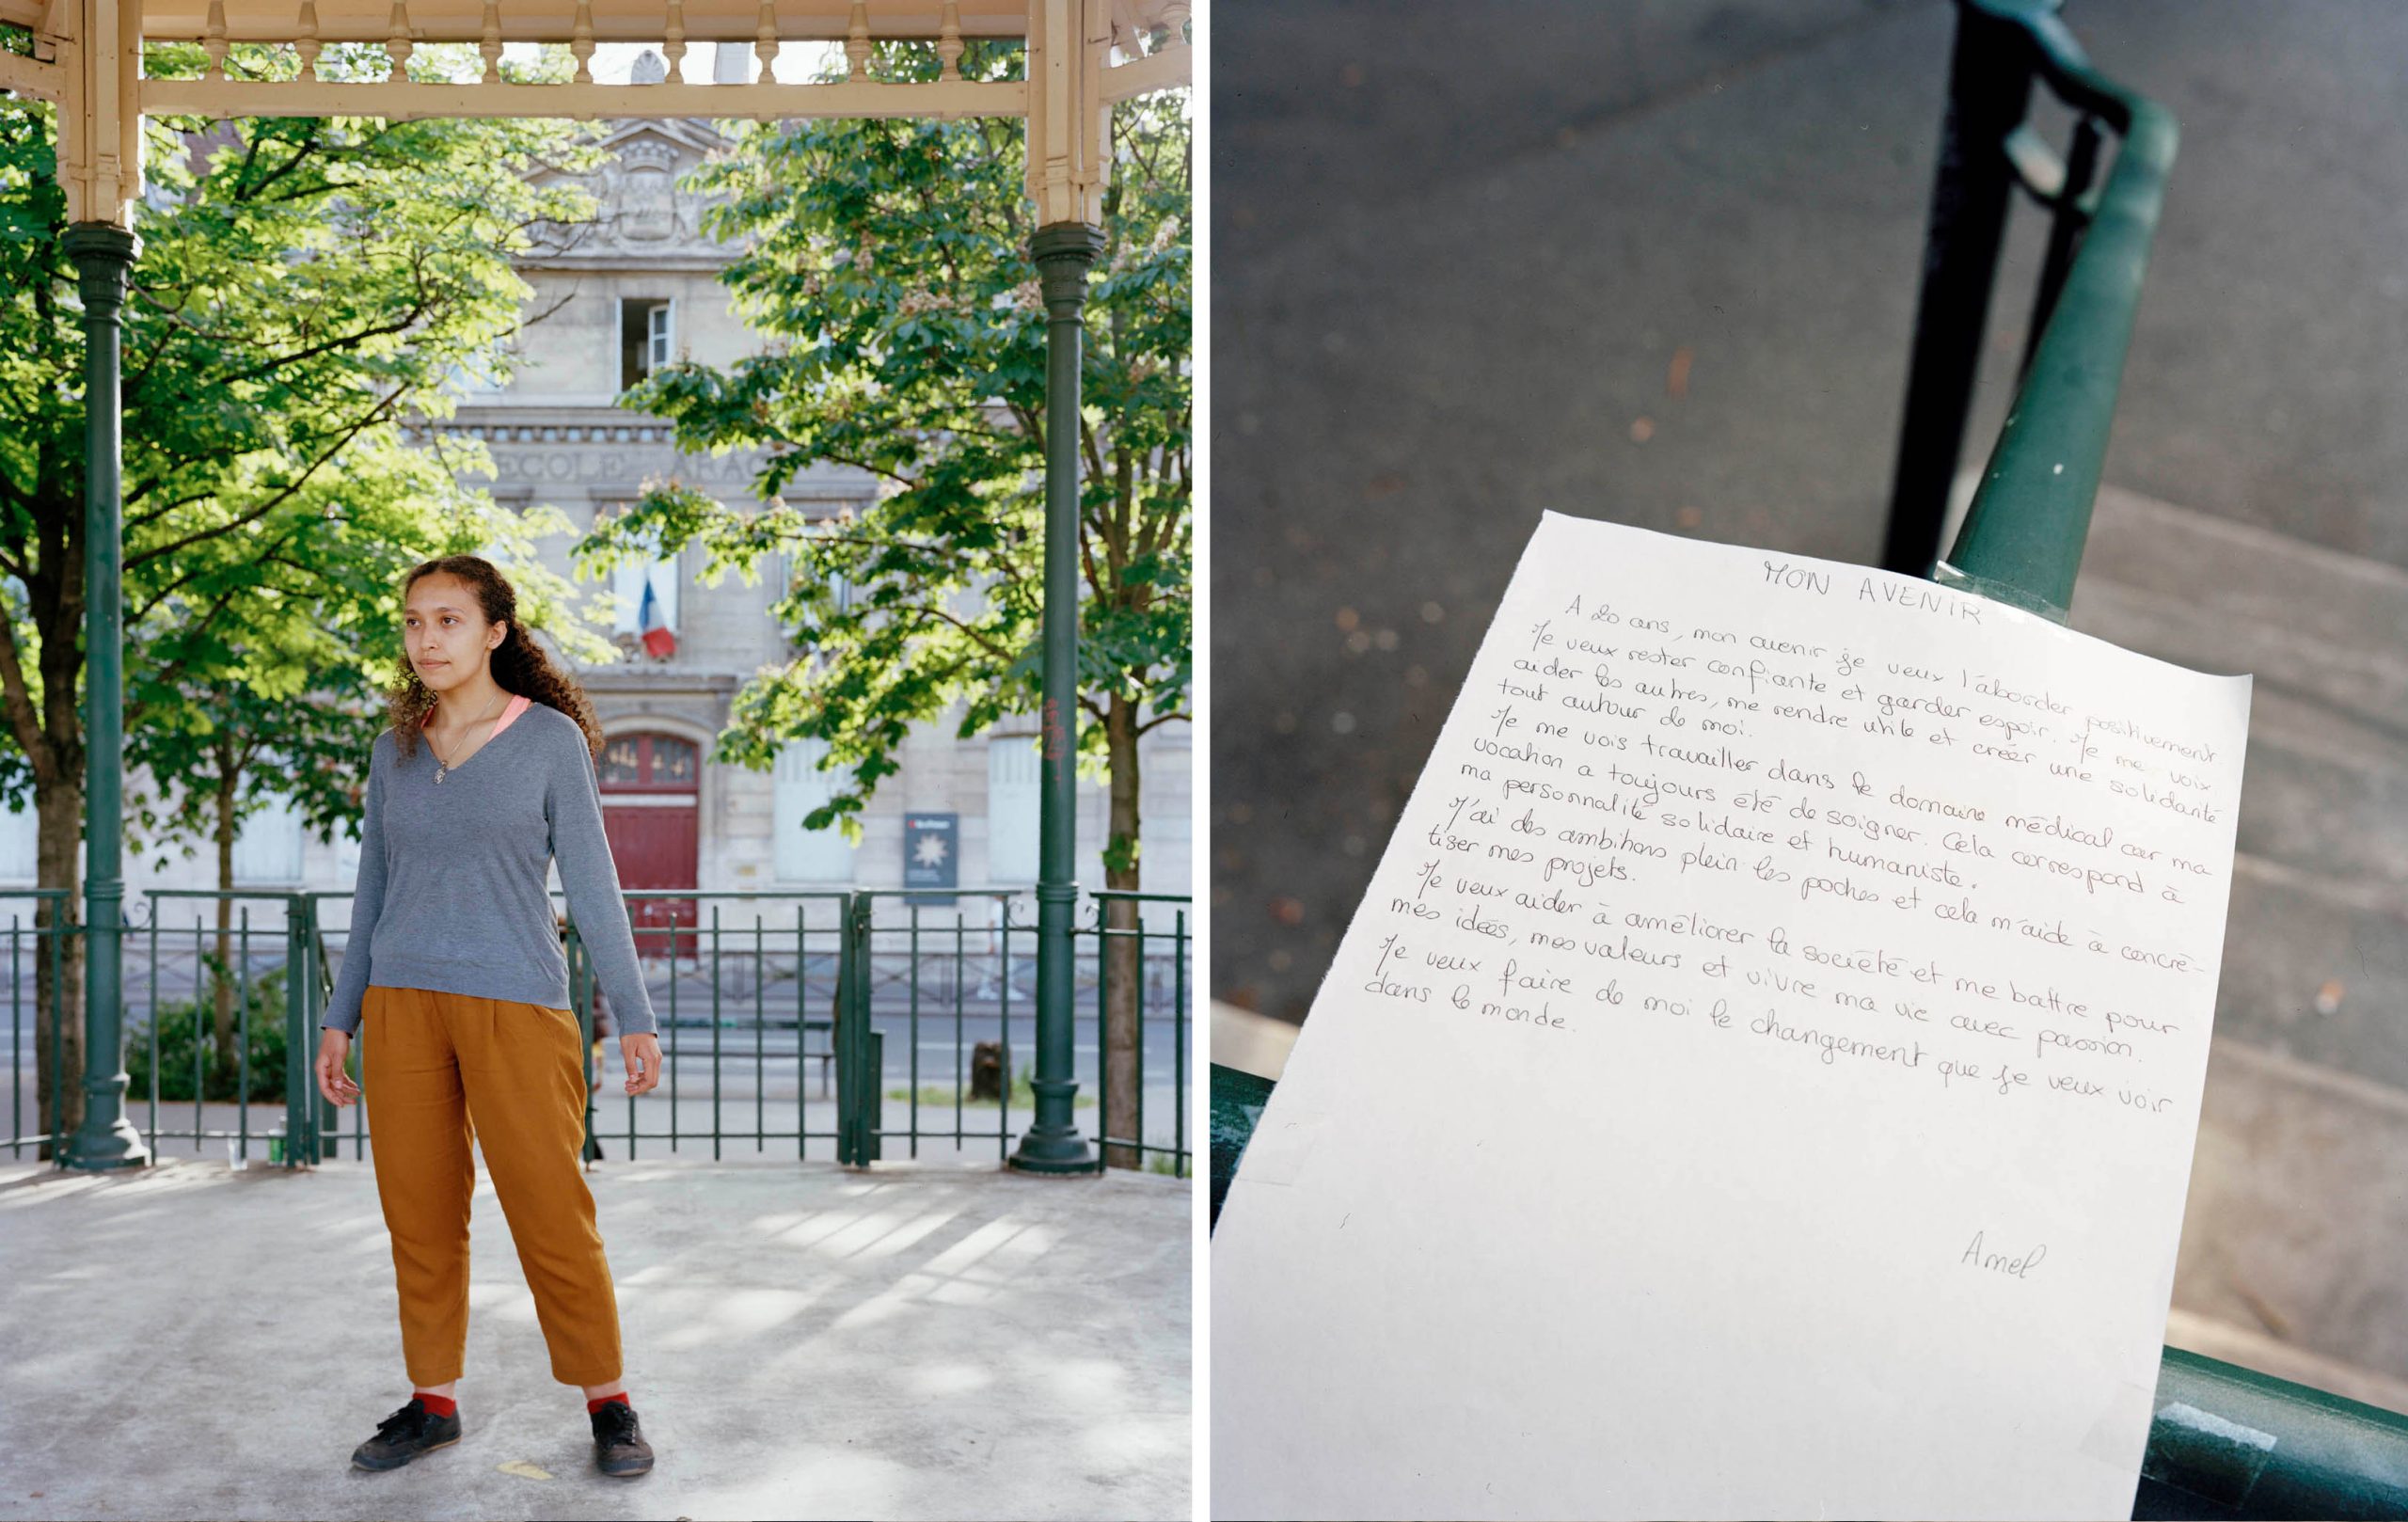 ECOLE ARAGO
MON AVENIR
A 20 ans, mon avenir je veux l'aborder positivement.
Je veux rester confiante et garder espoir. Je me voix
aider les autres, me rendre utile et créer une solidarité
tout autour de moi.
Je me vois travailler dans le domaine médical car ma
vocation a toujours été de soigner. Cela correspond à
ma personnalité solidaire et humaniste.
J'ai des ambitions plein les poches et cela m'aide à concré-
tiser mes projets.
Je veux aider à améliorer la société et me battre pour
mes idées, mes valeurs et vivre ma vie avec passion.
Je veux faire de moi le changement que je veux voir
dans le monde.
Amel